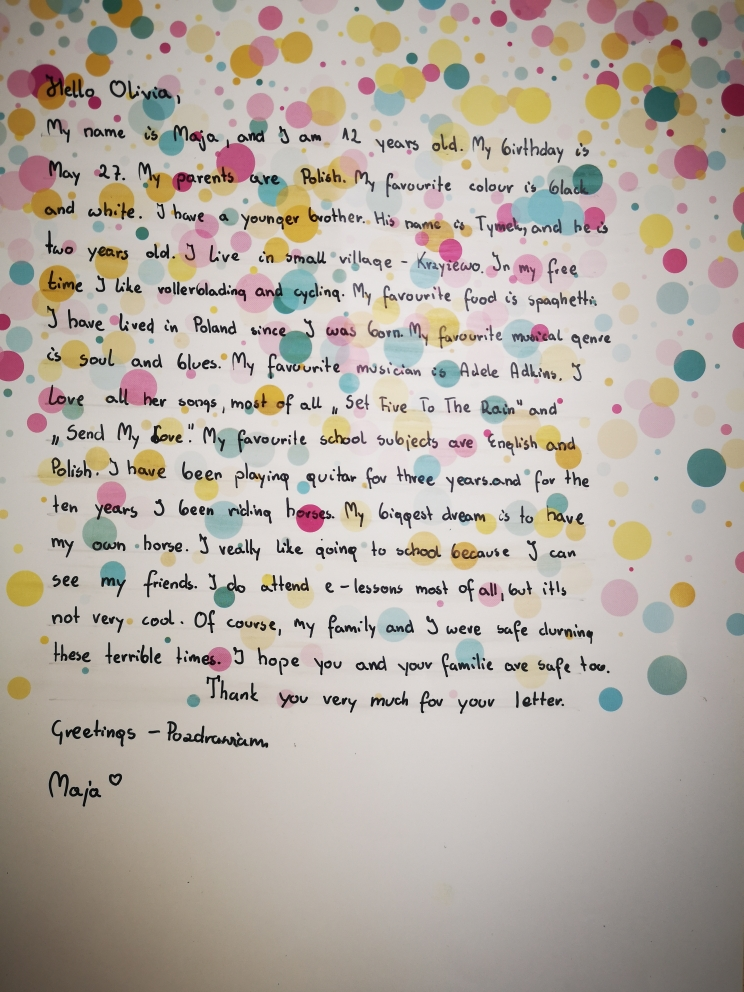 Hello Olivia,
My name is Maja, and I am 12 years old. My birthday is
May 27. My parents are Polish. My favourite colour is black
and white. I have a younger brother. His name is Tymek, and he is
two years old. I live in small village - Krzyżewo. In my free
time I like rollerblading and cycling. My favourite food is spaghetti.
I have lived in Poland since I was born. My favourite musical genre
is soul and blues. My favourite musician is Adele Adkins. I
love all her songs, most of all „Set Fire To The Rain" and
„Send My Love". My favourite school subjects are English and
Polish. I have been playing guitar for three years.and for the
ten years I been riding horses. My biggest dream is to have
my own horse. I really like going to school because I can
see my friends. I do attend e-lessons most of all, but it's
not very cool. Of course, my family and I were safe durning
these terrible times. I hope you and your familie are safe too.
Thank you very much for your letter.
Greetings - Pozdrawiam,
Maja ♡